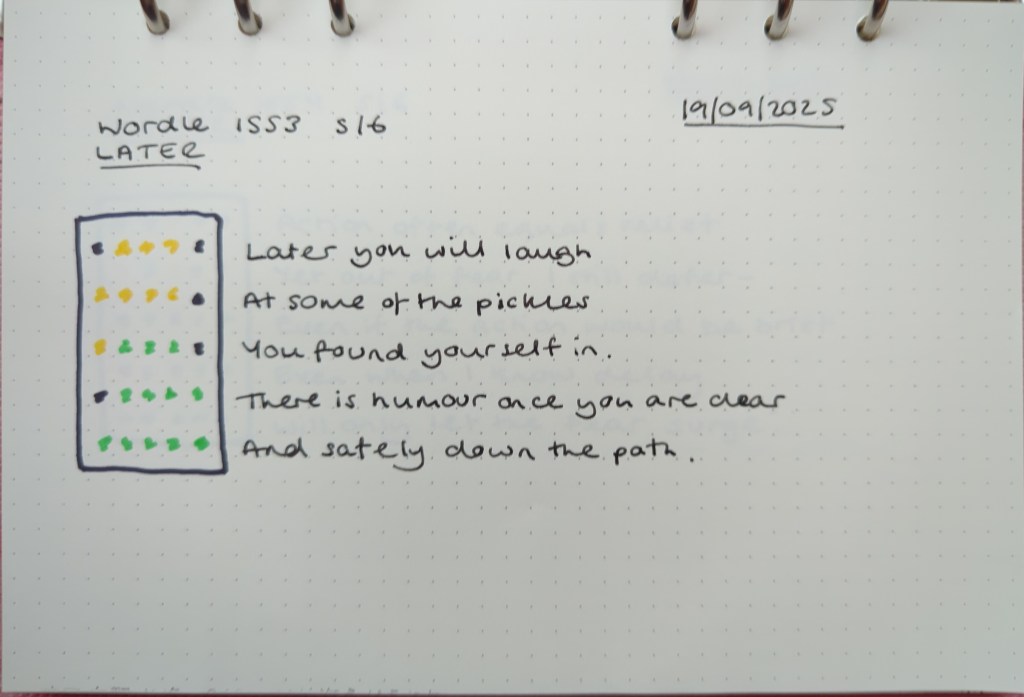 Wordle 1553 5/6
19/09/2025
LATER
Later you will laugh
At some of the pickles
You found yourself in.
There is humour once you are clear
And safely down the path.